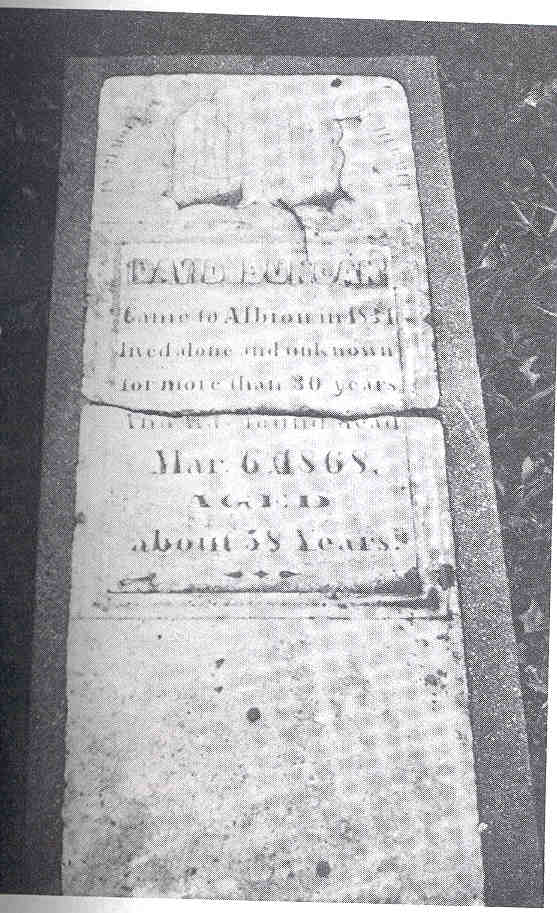 DAVID DUNCAN
Came to Albion in
lived alone and unknown
for more than 30 years
And was found dead
Mar. 6, 1868,
AGED
about 58 Years.